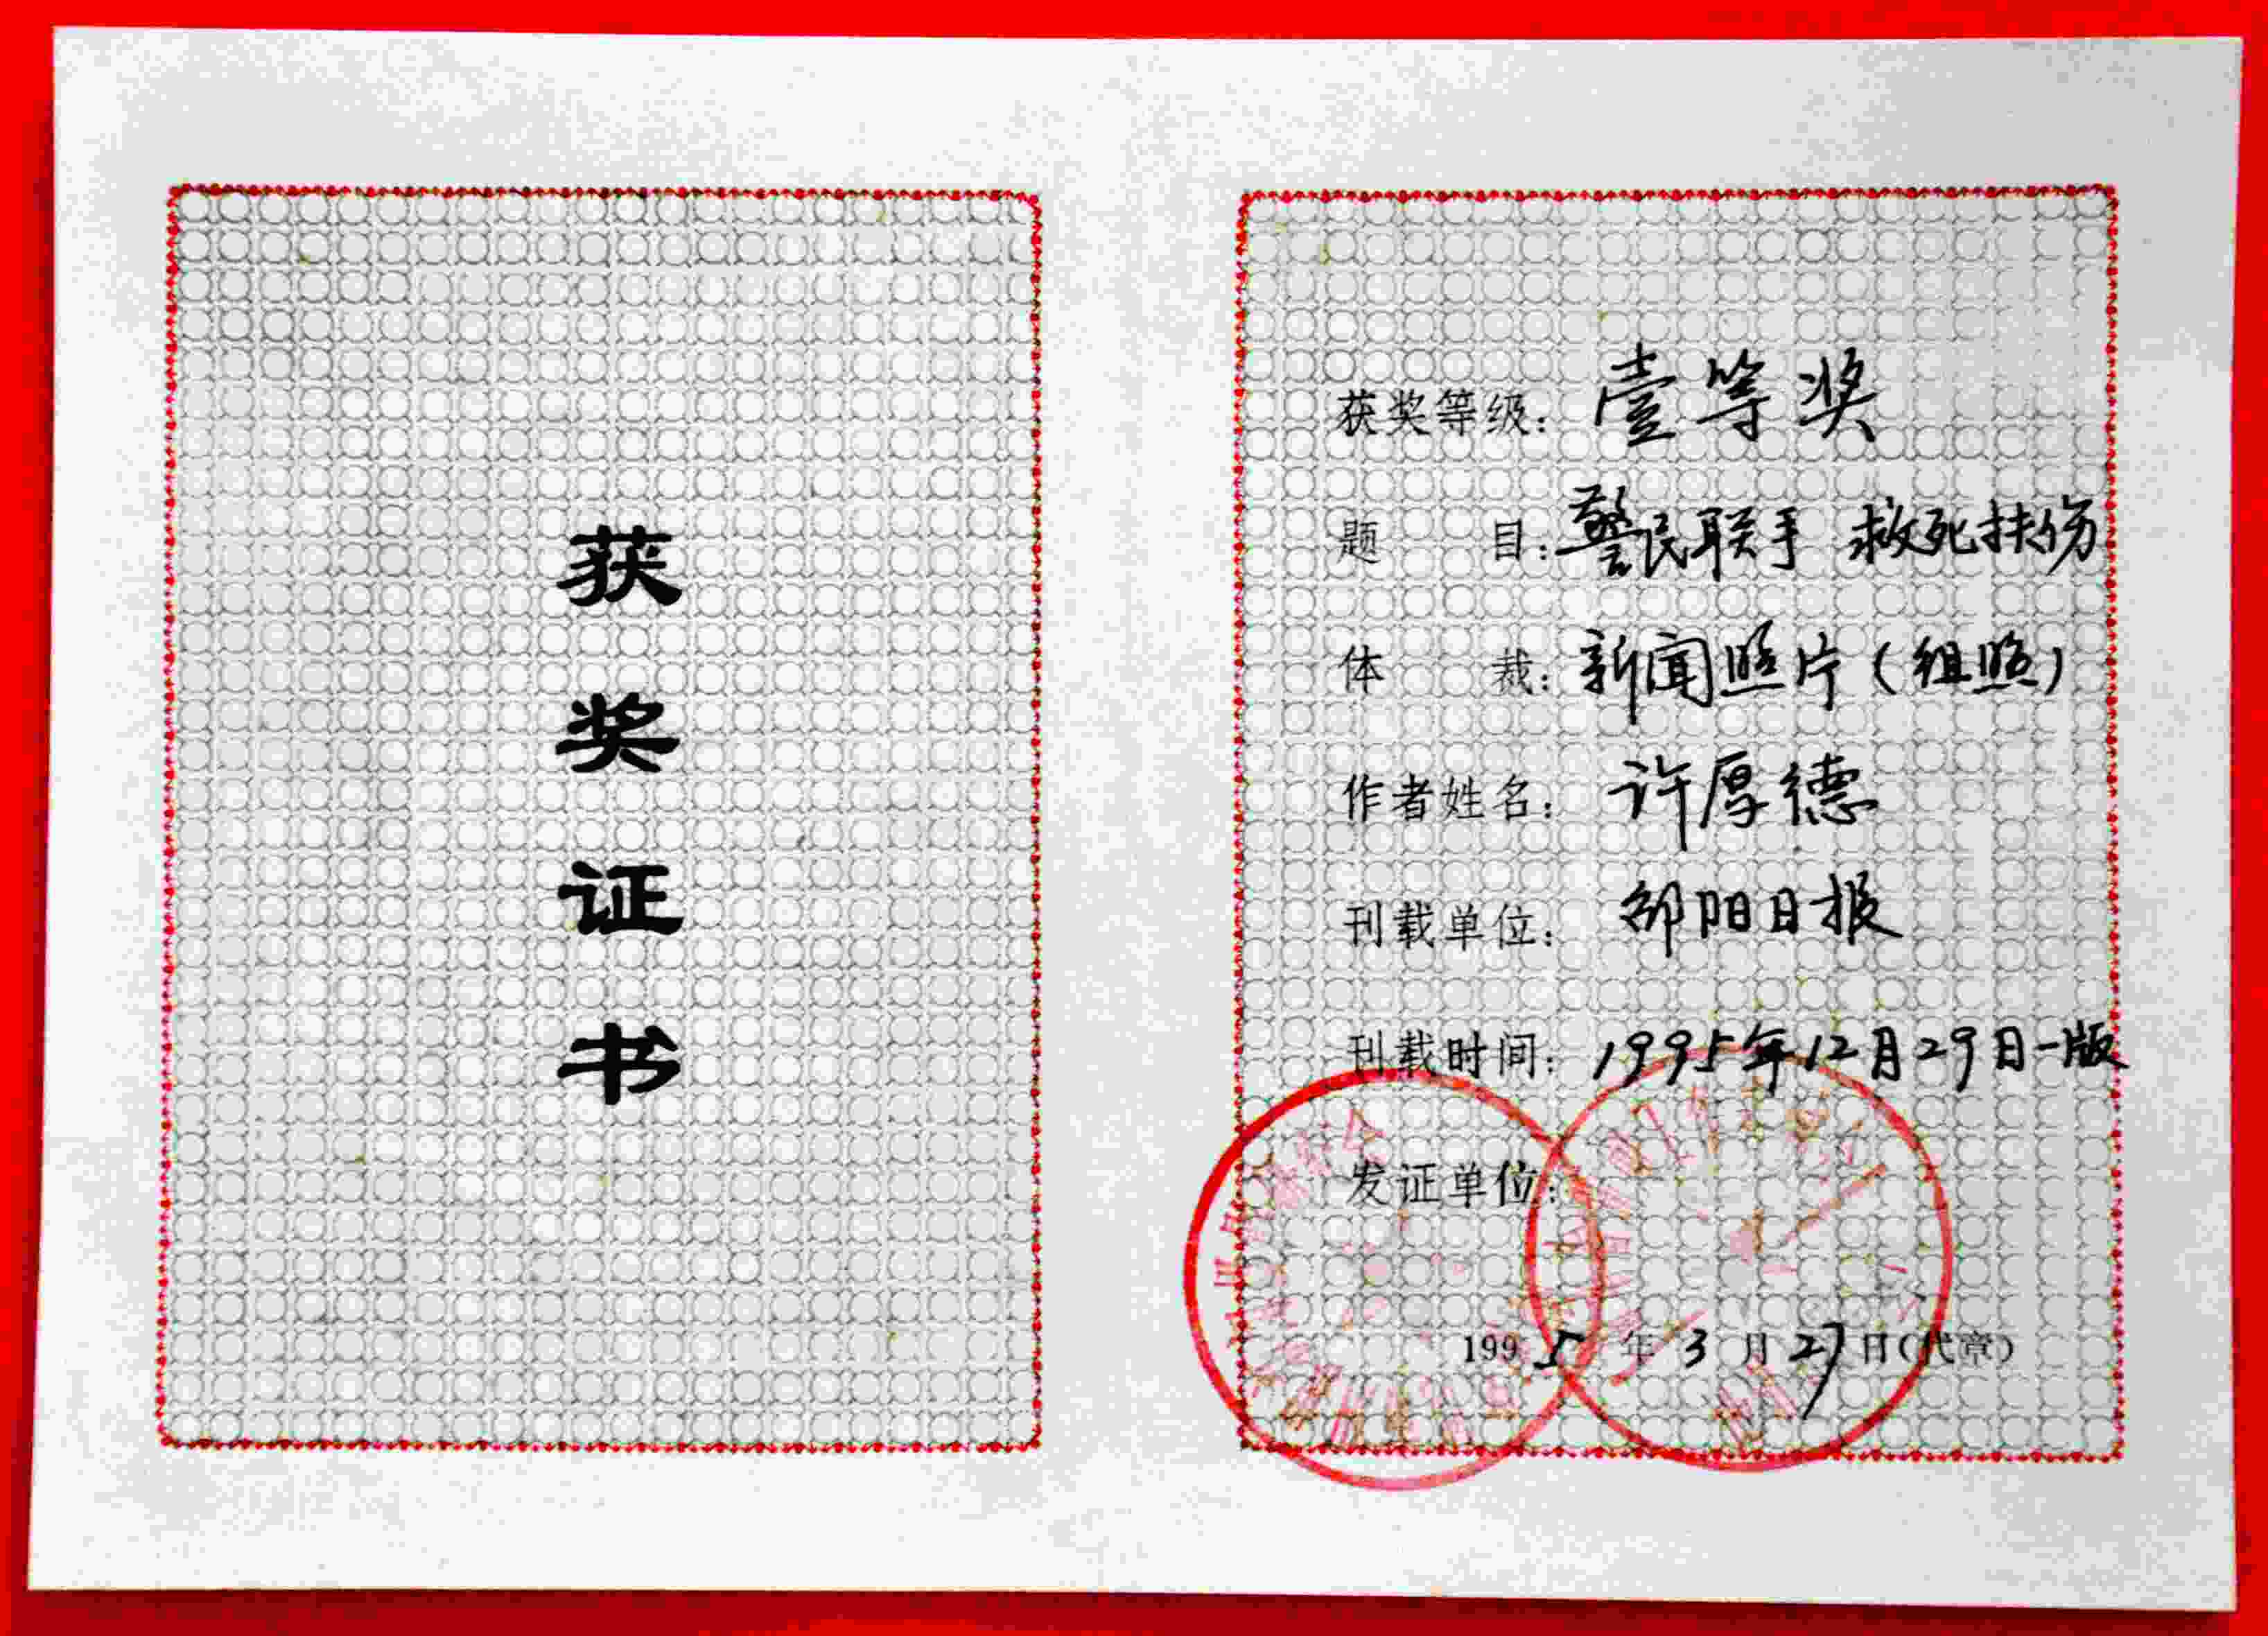 获奖证书
获奖等级：壹等奖
题目：警民联手 救死扶伤
体裁：新闻照片（组照）
作者姓名：许厚德
刊载单位：邵阳日报
刊载时间：1995年12月29日一版
发证单位：
1995年3月27日（代章）